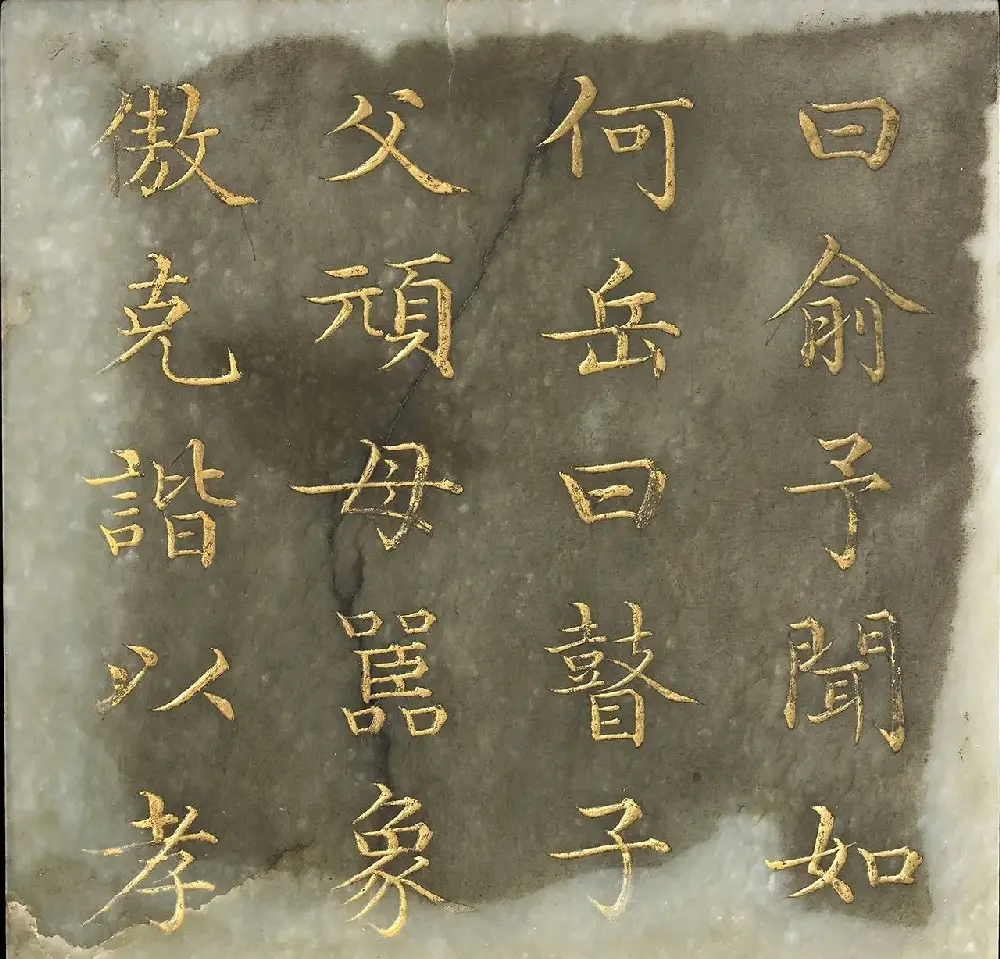 曰俞予聞如
何岳曰瞽子
父頑母嚚象
傲克諧以孝